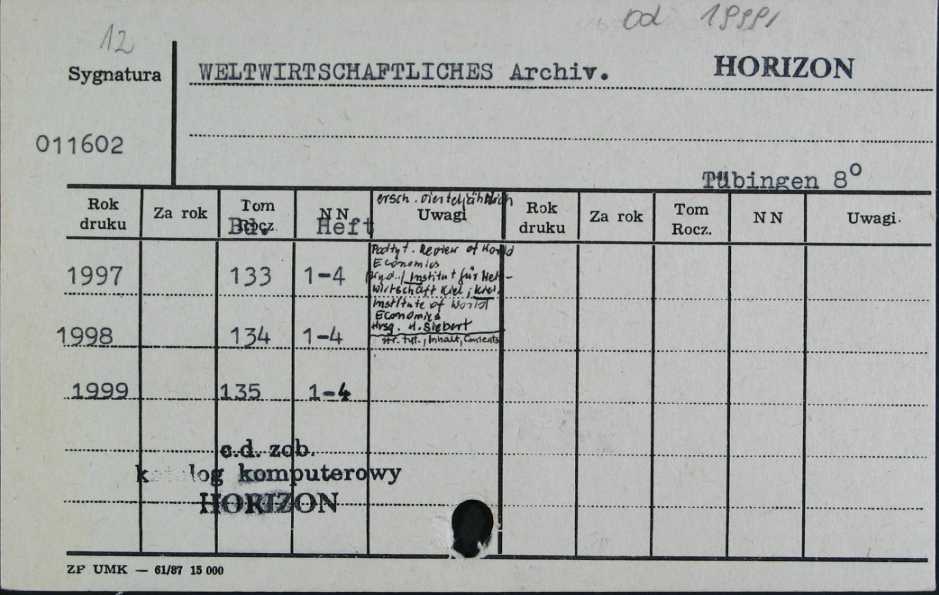 12
od 1999,
Sygnatura WELTWIRTSCHAFTLICHES Archiv. HORIZON
011602
Tübingen 8°
ersch. vierteljährlich
Rok druku Za rok Tom Rocz. NN Uwagi Rok druku Za rok Tom Rocz. NN Uwagi
Bd. Heft
Podtyt. Review of World
Economics
1997 133 1-4
Institut für Welt-
wirtschaft Kiel, Kiel
Institute of World
Economics
Hrsg. H. Siebert
1998 134 1-4
str. tyt., Inhalt, Contents
1999 135 1-4
c.d. zob.
katalog komputerowy
HORIZON
ZP UMK — 61/87 15 000